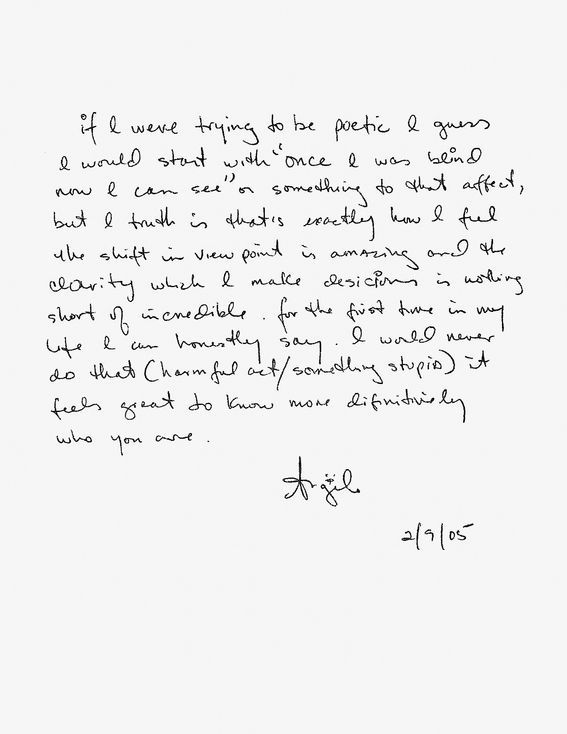 if I were trying to be poetic I guess
I would start with "once I was blind
now I can see" or something to that affect,
but I truth is that's exactly how I feel
the shift in view point is amazing and the
clarity which I make desicions is nothing
short of incredible. for the first time in my
life I can honestly say. I would never
do that (harmful act/something stupid) it
feels great to know more difinitively
who you are.
2/9/05